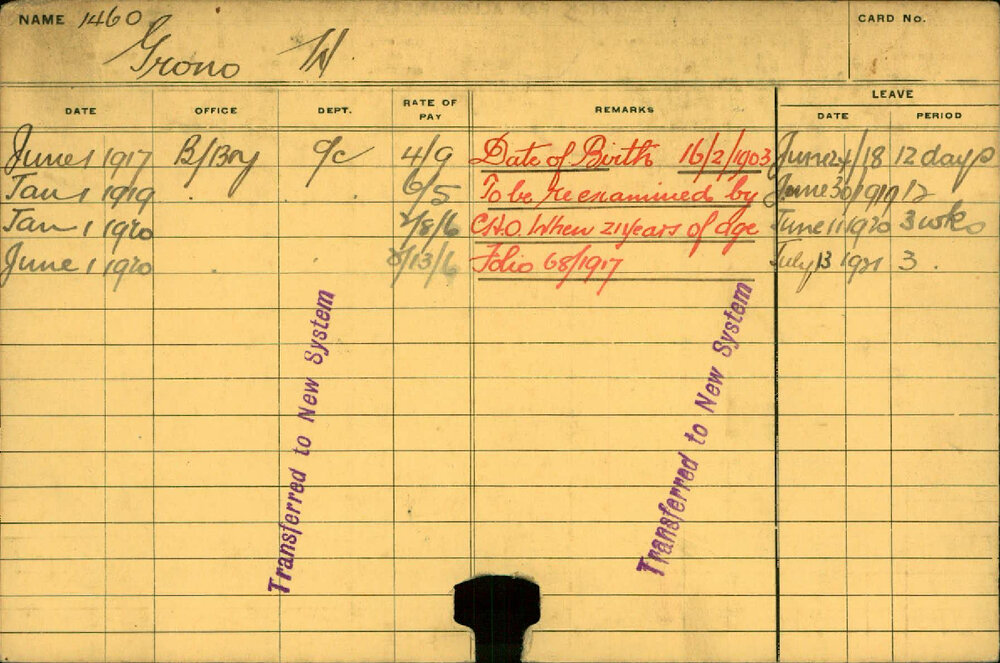 NAME 1460 CARD No.
Grono W
LEAVE
DATE OFFICE DEPT. RATE OF PAY REMARKS DATE PERIOD
June 1 1917 B/Boy 4/9 Date of Birth 16/2/1903 June 24/18 12 days
Jan 1 1919 6/5 To be re examined by June 30/1919 12
Jan 1 1920 /8/6 C.H.O. When 21 years of age June 11 1920 3 wks
June 1 1920 /13/6 Folio 68/1917 July 13 1921 3
Transferred to New System
Transferred to New System